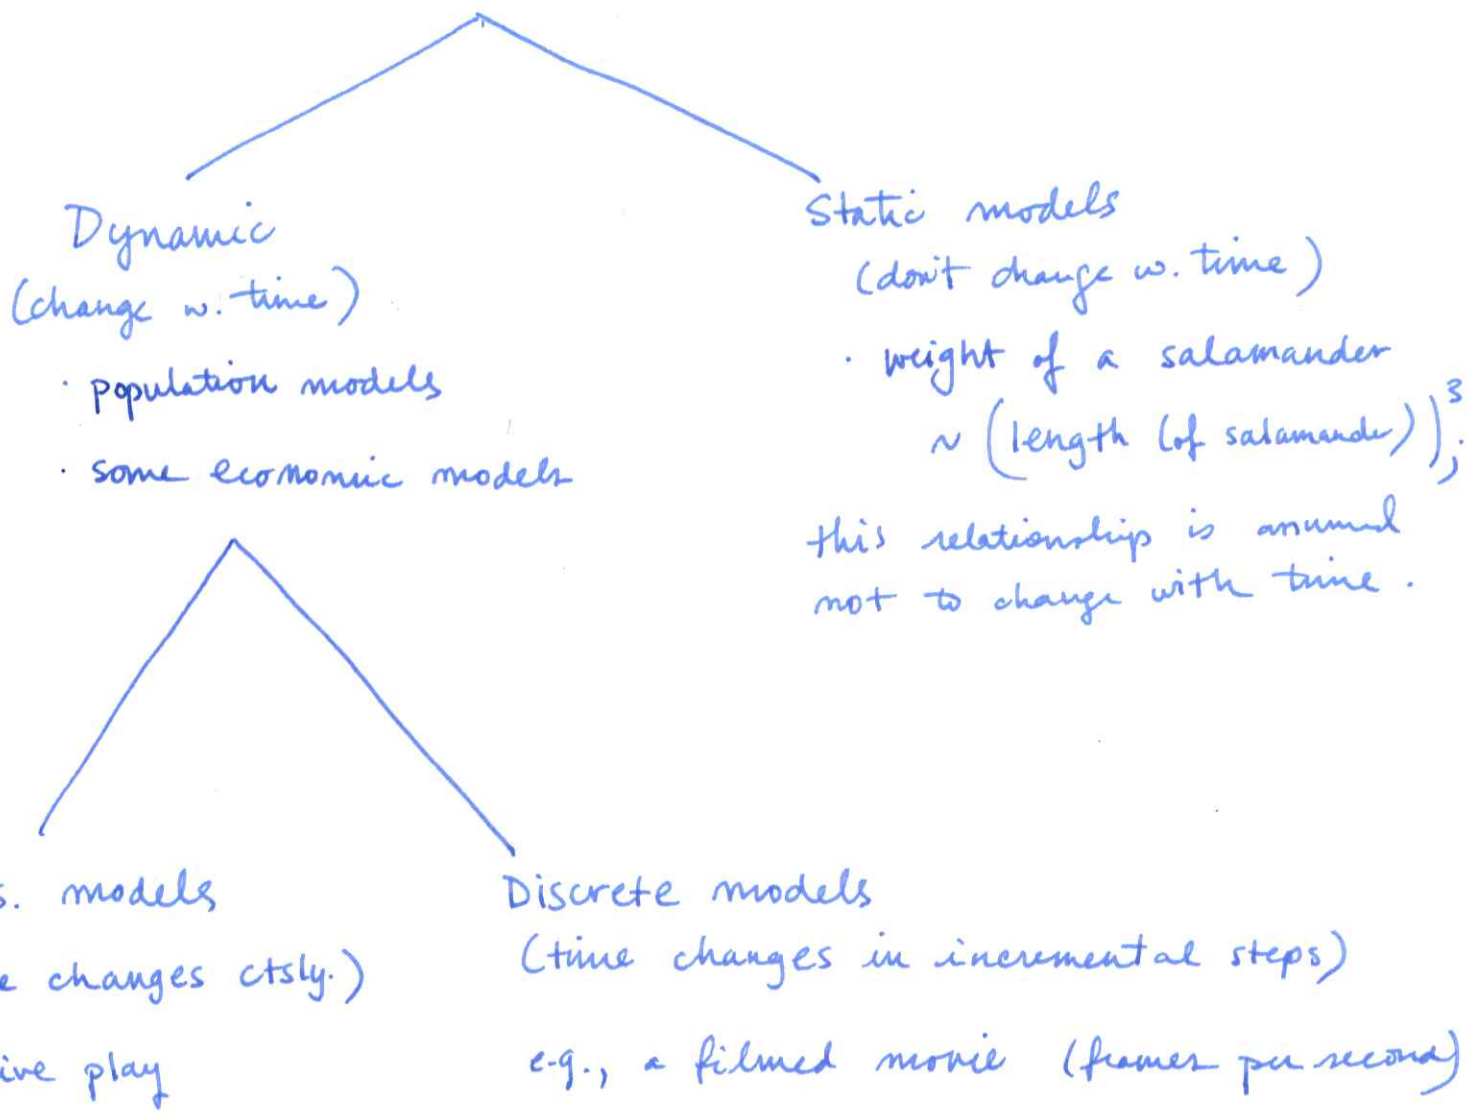 Dynamic
(change w. time)
· population models
· some economic models
Static models
(don't change w. time)
· weight of a salamander
~ (length (of salamander))³;
this relationship is assumed
not to change with time.
s. models
e changes ctsly.)
ive play
Discrete models
(time changes in incremental steps)
e.g., a filmed movie (frames per second)